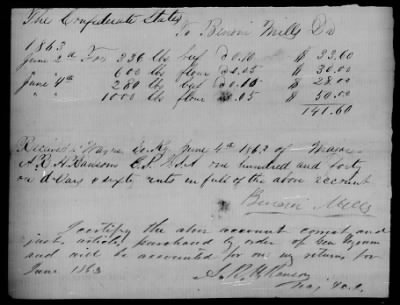 The Confederate States
To Benoni Mills Dr
1863
June 2nd For 336 lbs beef @ 0.10 $ 33.60
" " 600 lbs flour @ 0.05 $ 30.00
June 4th 280 lbs bef @ 0.10 $ 28.00
" " 1000 lbs flour @ .05 $ 50.00
141.60
Received Wayne Co Ky June 4th 1863 of Major
A. R. H. Ransom C.S. one hundred and forty
one dollars & sixty cents in full of the above account
Benoni Mills
I certify the above account correct and
just articles purchased by order of Gen Pegram
and will be accounted for on my returns for
June 1863
A. R. H. Ranson
Maj &c.